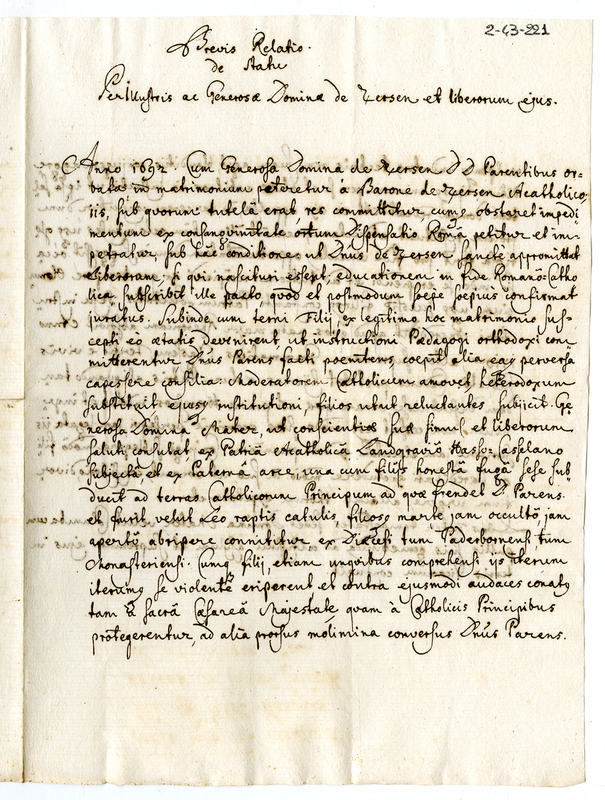 2-43-221
Brevis Relatio.
de Statu
PerIllustris ac Generosæ Dominæ de Zersen et liberorum ejus.
Anno 1692. Cum Generosa Domina de Zersen DD Parentibus or-
bata in matrimonium peteretur à Barone de Zersen Acatholico,
iis, sub quorum tutelâ erat res committitur cumq obstaret impedi
mentum ex consanguinitate ortum Dispensatio Româ petitur et im-
petratur, sub hâc conditione: ut Dnus de Zersen sanctè appromittat
Liberorum, si qui nascituri essent, educationem in fide Romano Catho
lica subscribit ille pacto, quod et postmodum sæpe sæpius confirmat
juratus. Subinde cum terni Filij, ex legitimo hoc matrimonio sus-
cepti eò ætatis devenirent, ut instructioni Pædagogi orthodoxi com
mitterentur Dnus Parens facti poenitens, coepit alia eaq perversa
capessere consilia: Moderatorem Catholicum amovet, heterodoxum
substituit ejusq institutioni, filios utut reluctantes subijcit. Ge-
nerosa Domina Mater, ut conscientiæ suæ simul et liberorum
saluti consulat ex Patriâ Acatholicâ Landgraviô Hasso-Casselano
subjectâ et ex Paternâ arce, una cum filijs honestâ fugâ sese sub
ducit ad terras Catholicorum Principum, ad quæ frendet D. Parens.
et furit velut Leo raptis catulis, filiosq marte jam occultô jam
apertô abripere connititur ex Dioecesi tum Paderbornensi tum
Monasteriensi. Cumq filij, etiam unguibus comprehensi ijs iterum
iterumq se violentè eriperent et contra ejusmodi audaces conatq
tam à Sacrâ Cæsareâ Majestate quam à Catholicis Principibus
protegerentur, ad alia prorsus molimina conversus Dnus Parens.